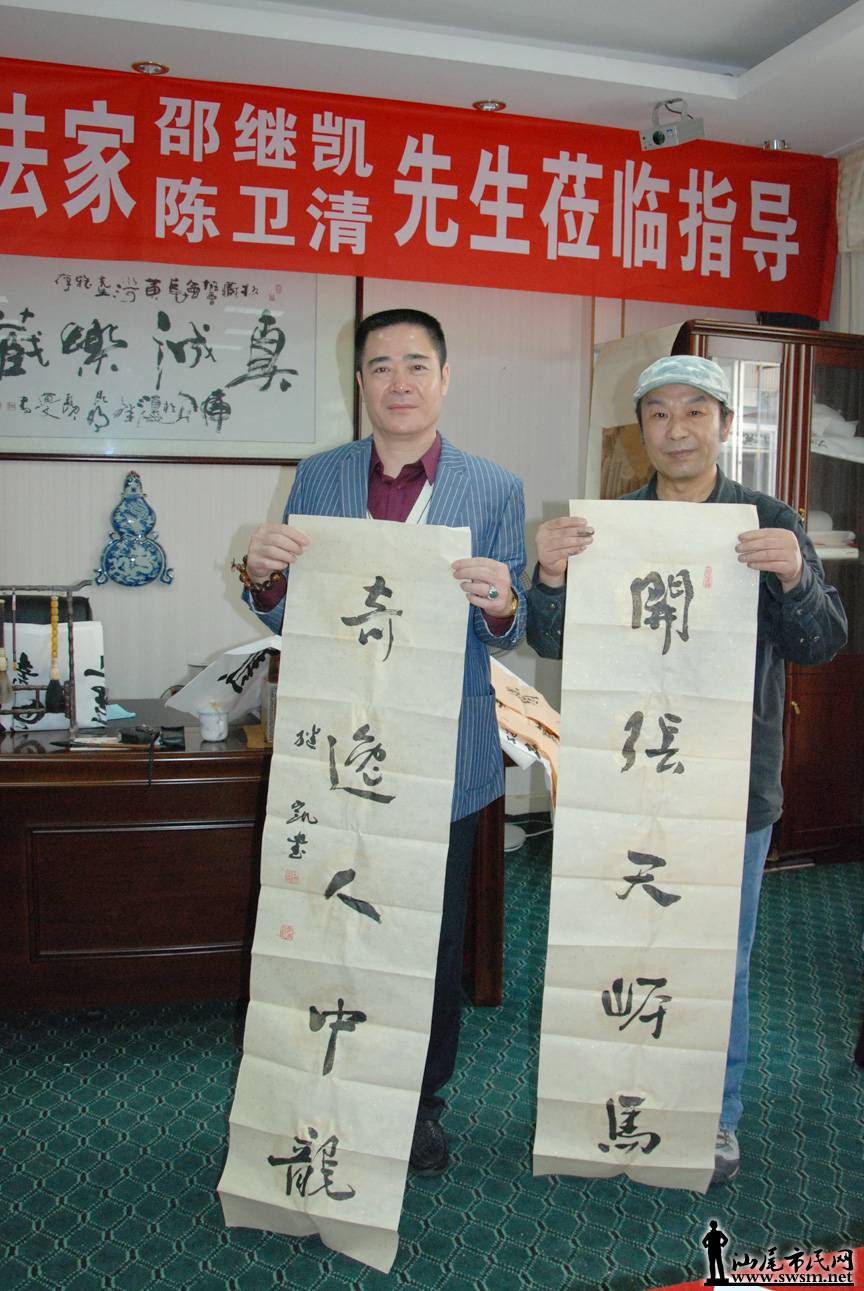 法家邵继凯先生莅临指导
陈卫清
真誠樂藏
開張天岸馬
奇逸人中龍
继凯書
汕尾市民网
www.swsm.net